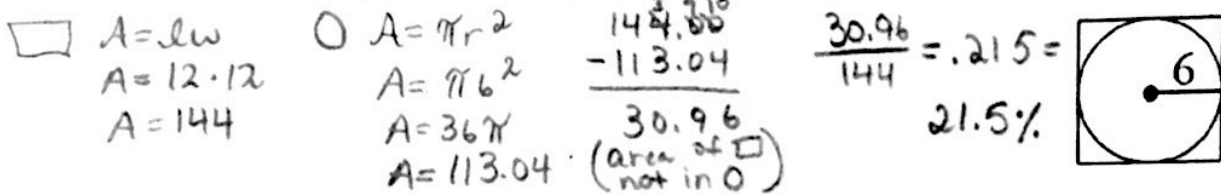 A = lw
A = 12 · 12
A = 144
A = πr²
A = π6²
A = 36π
A = 113.04
144.00
-113.04
30.96
(area of □
not in O)
30.96/144 = .215 =
21.5%
6